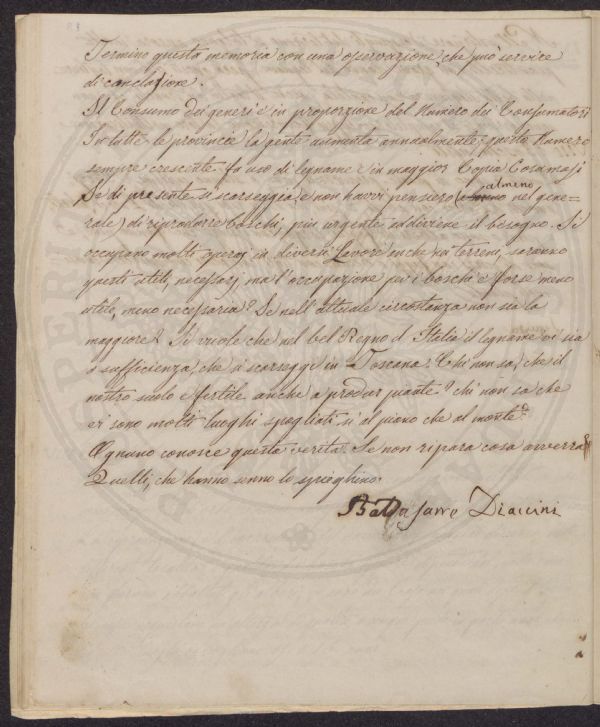 Termino questa memoria con una osservazione, che può servire
di conclusione.
Il Consumo dei generi è in proporzione del Numero dei Consumatori
In tutte le provincie la gente aumenta annualmente, questo Numero
sempre crescente fa uso di legname e in maggior Copia Consumasi
Se di presente si scarseggia, e non havvi pensiero (almeno nel gene=
rale) di riprodurre boschi, più urgente addiviene il bisogno. Si
occupano molti operaj in diversi Lavori anche su terreni, saranno
questi utili, necessarj ma l'occupazione per i boschi è forse meno
utile, meno necessaria? Se nell'attuale circostanza non sia la
maggiore? Si vuole che nel bel Regno d'Italia il legname vi sia
a sufficienza, che si scarseggi in Toscana. Chi non sa, che il
nostro suolo è fertile anche a produr piante? chi non sa che
vi sono molti luoghi spogliati sì al piano che al monte?
Ognuno conosce questa verità. Se non ripara cosa avverrà?
Quelli, che hanno senno lo spieghino.
Baldassarre Diaccini